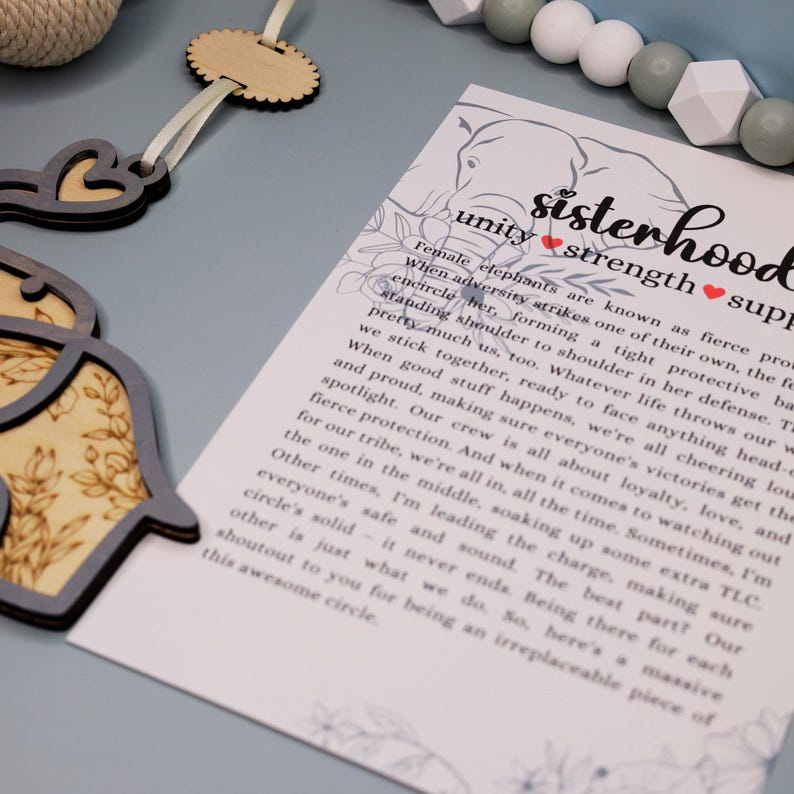 sisterhood
unity ❤ strength ❤ supp
Female elephants are known as fierce pro
When adversity strikes one of their own, the fe
encircle her, forming a tight protective ba
standing shoulder to shoulder in her defense. Th
pretty much us, too. Whatever life throws our w
we stick together, ready to face anything head-o
When good stuff happens, we're all cheering lou
and proud, making sure everyone's victories get the
spotlight. Our crew is all about loyalty, love, and
fierce protection. And when it comes to watching out
for our tribe, we're all in, all the time. Sometimes, I'm
the one in the middle, soaking up some extra TLC.
Other times, I'm leading the charge, making sure
everyone's safe and sound. The best part? Our
circle's solid - it never ends. Being there for each
other is just what we do. So, here's a massive
shoutout to you for being an irreplaceable piece of
this awesome circle.